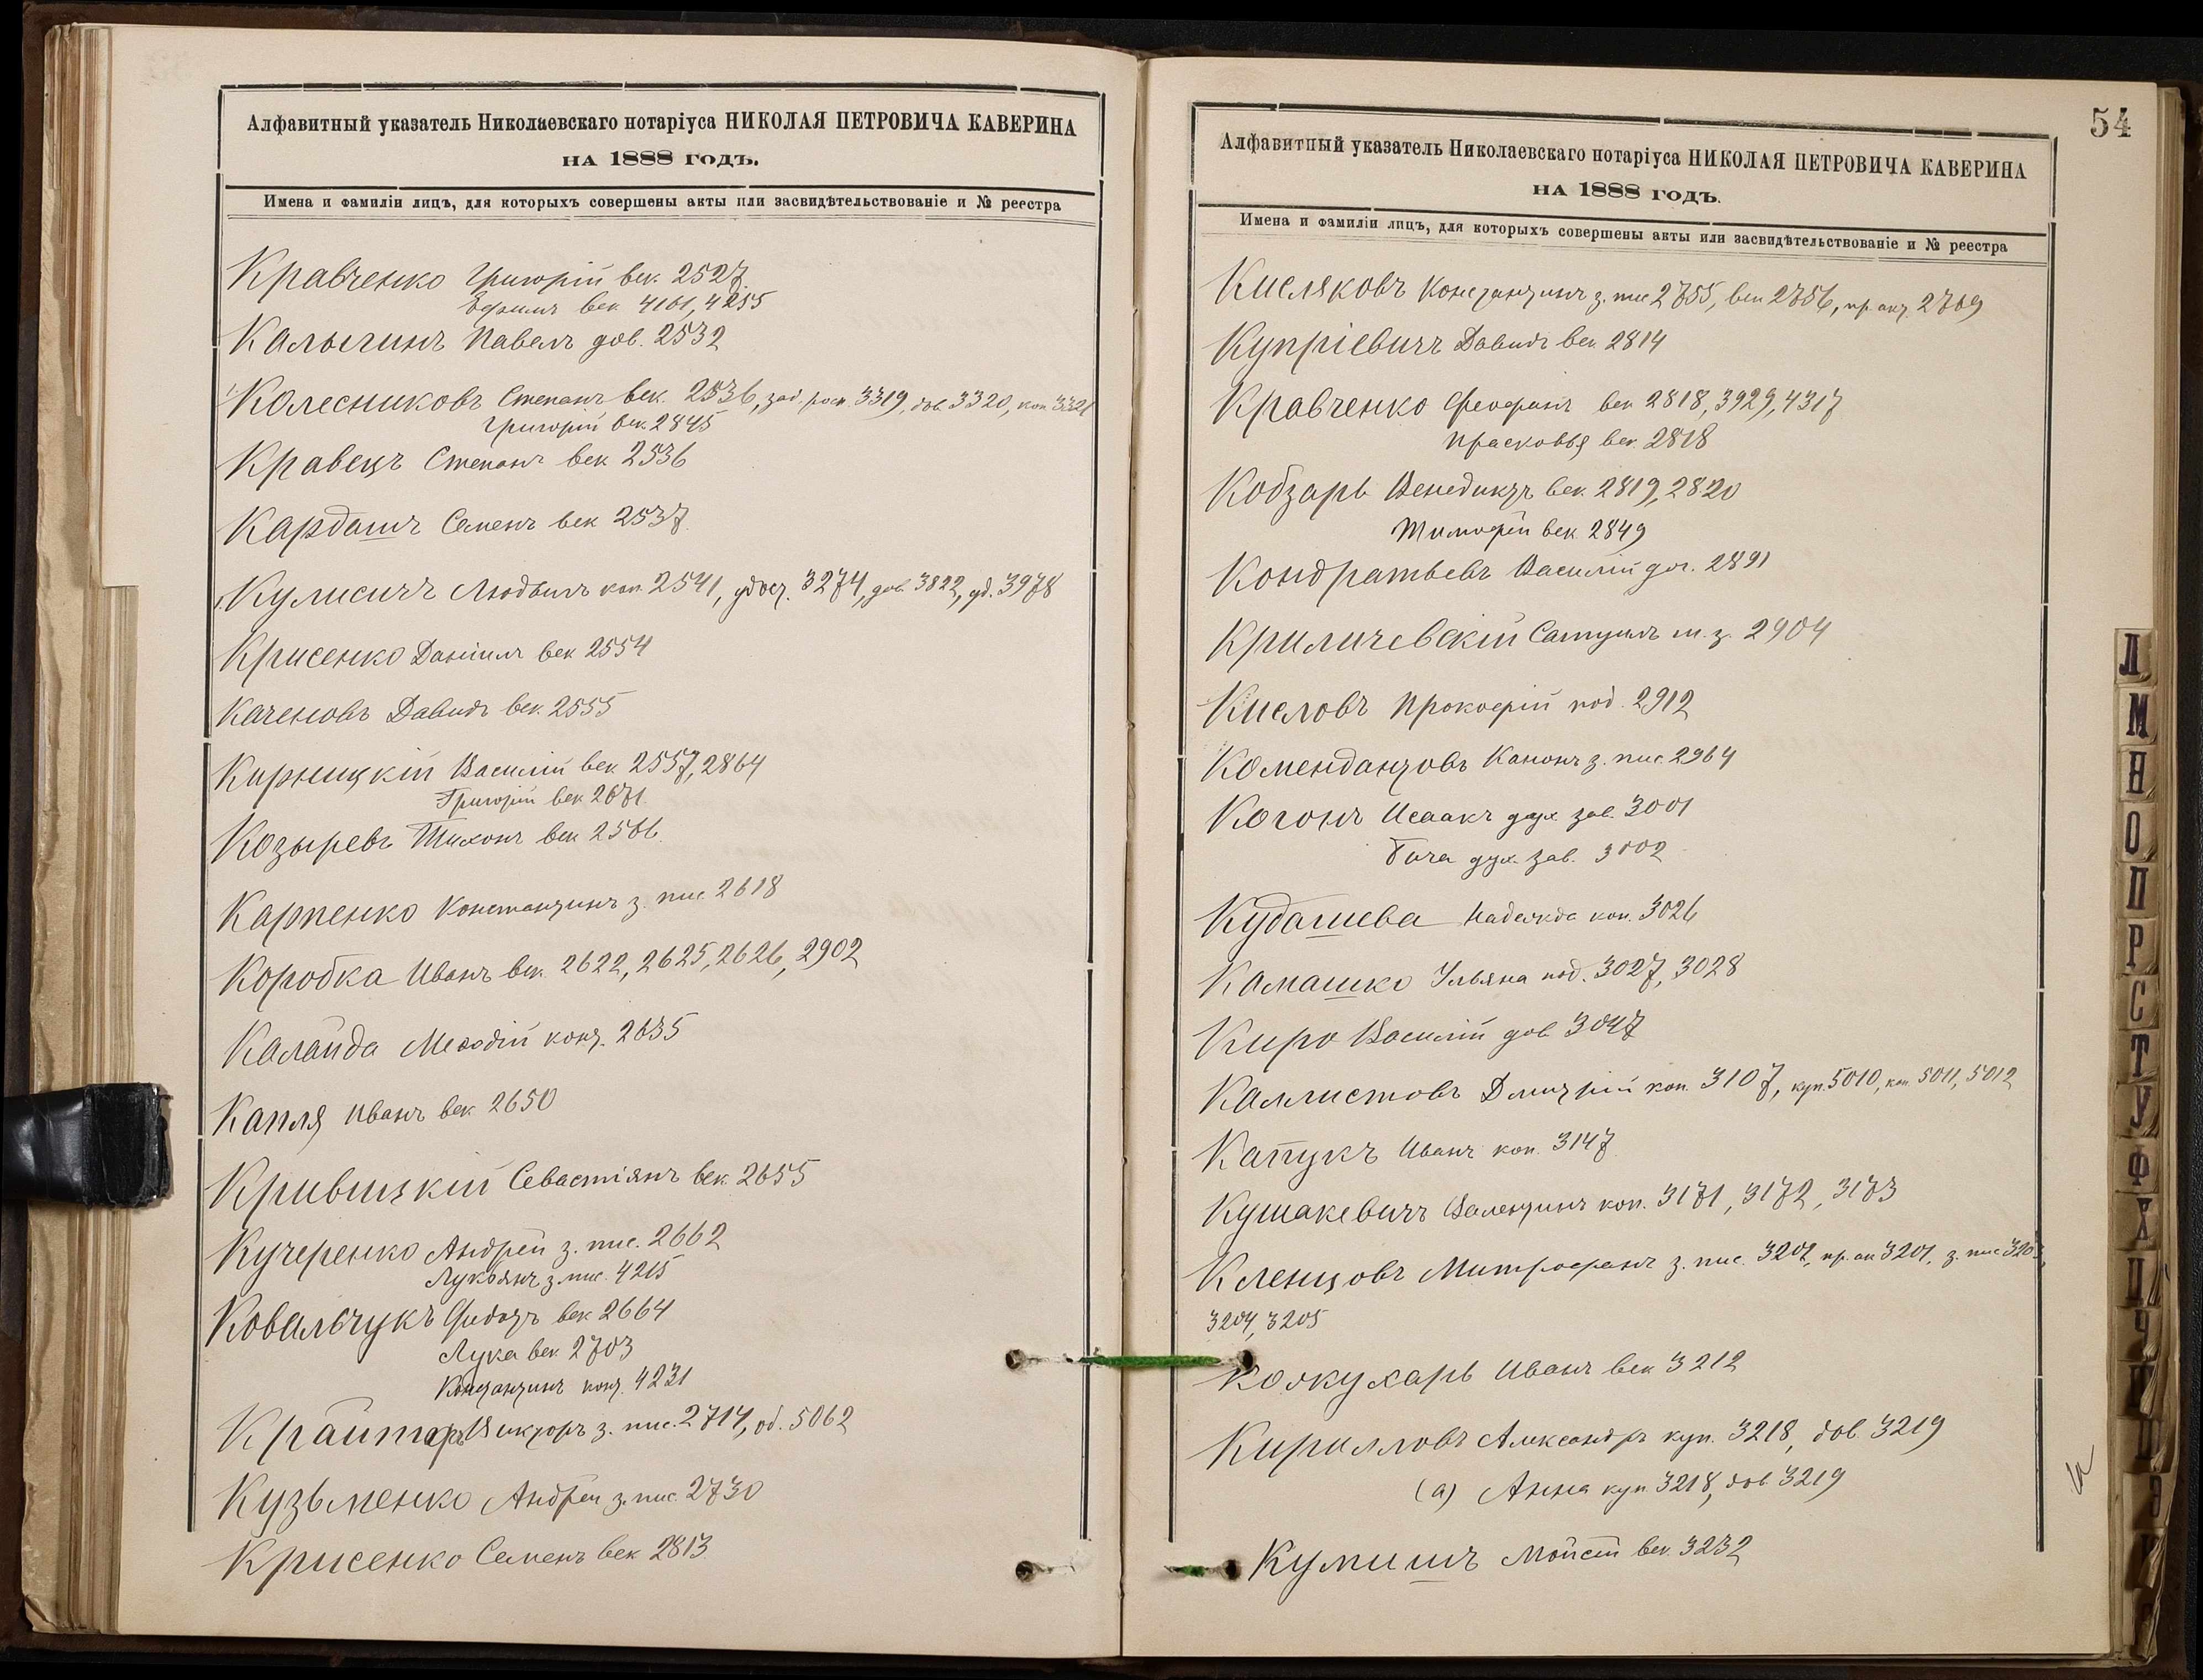 Алфавитный указатель Николаевскаго нотаріуса НИКОЛАЯ ПЕТРОВИЧА КАВЕРИНА
НА 1888 ГОДЪ.
Имена и фамиліи лицъ, для которыхъ совершены акты или засвидѣтельствованіе и № реестра
Кравченко Григорій век. 2527
Ефимъ век 4161, 4255
Калыгинъ Павелъ дов. 2532
Колесниковъ Степанъ век. 2536, зад. росп. 3319, дов. 3320, коп 3321
Григорій век. 2845
Кравецъ Степанъ век 2536
Кардашъ Семенъ век 2537
Кулисичъ Людвигъ коп. 2541, удост. 3274, дов. 3822, уд. 3978
Крисенко Даніилъ век 2554
Каченовъ Давидъ век. 2555
Кирницкій Василій век 2557, 2864
Григорій век 2671
Козыревъ Тихонъ век 2566
Карпенко Константинъ з. пис. 2618
Коробка Иванъ век. 2622, 2625, 2626, 2902
Калайда Мефодій конт. 2635
Капля Иванъ век 2650
Кривицкій Севастіянъ век. 2655
Кучеренко Андрей з. пис. 2662
Лукьянъ з. пис. 4215
Ковальчукъ Федотъ век 2664
Лука век. 2703
Константинъ конт. 4231
Крайтаръ Викторъ з. пис. 2714, об. 5062
Кузьменко Андрей з. пис. 2730
Крисенко Семенъ век 2813
54
Алфавитный указатель Николаевскаго нотаріуса НИКОЛАЯ ПЕТРОВИЧА КАВЕРИНА
НА 1888 ГОДЪ.
Имена и фамиліи лицъ, для которыхъ совершены акты или засвидѣтельствованіе и № реестра
Кисляковъ Константинъ з. пис 2755, век 2756, пр. акт. 2769
Купріевичъ Давидъ век 2814
Кравченко Феофанъ век 2818, 3929, 4317
Прасковья век. 2818
Кобзарь Венедиктъ век. 2819, 2820
Тимофей век. 2849
Кондратьевъ Василій дог. 2891
Криличевскій Самуилъ м. з. 2904
Кисловъ Прокофій под. 2912
Комендантовъ Кононъ з. пис. 2964
Когонъ Исаакъ дух. зав. 3001
дух. зав. 3002
Кудашева Надежда коп. 3026
Камашко Ульяна под. 3027, 3028
Киро Василій дов. 3047
Каллистовъ Дмитрій коп. 3107, куп. 5010, коп. 5011, 5012
Капукъ Иванъ коп. 3147
Кушакевичъ Валентинъ коп. 3171, 3172, 3173
Кленцовъ Митрофанъ з. пис. 3202, пр. ак 3201, з. пис 3203,
3204, 3205
Кожухарь Иванъ век 3212
Кирилловъ Александръ куп. 3218, дов. 3219
(а) Анна куп. 3218, дов 3219
Кумишъ Мойсей век. 3232
Л
М
Н
О
П
Р
С
Т
У
Ф
Х
Ц
Ч